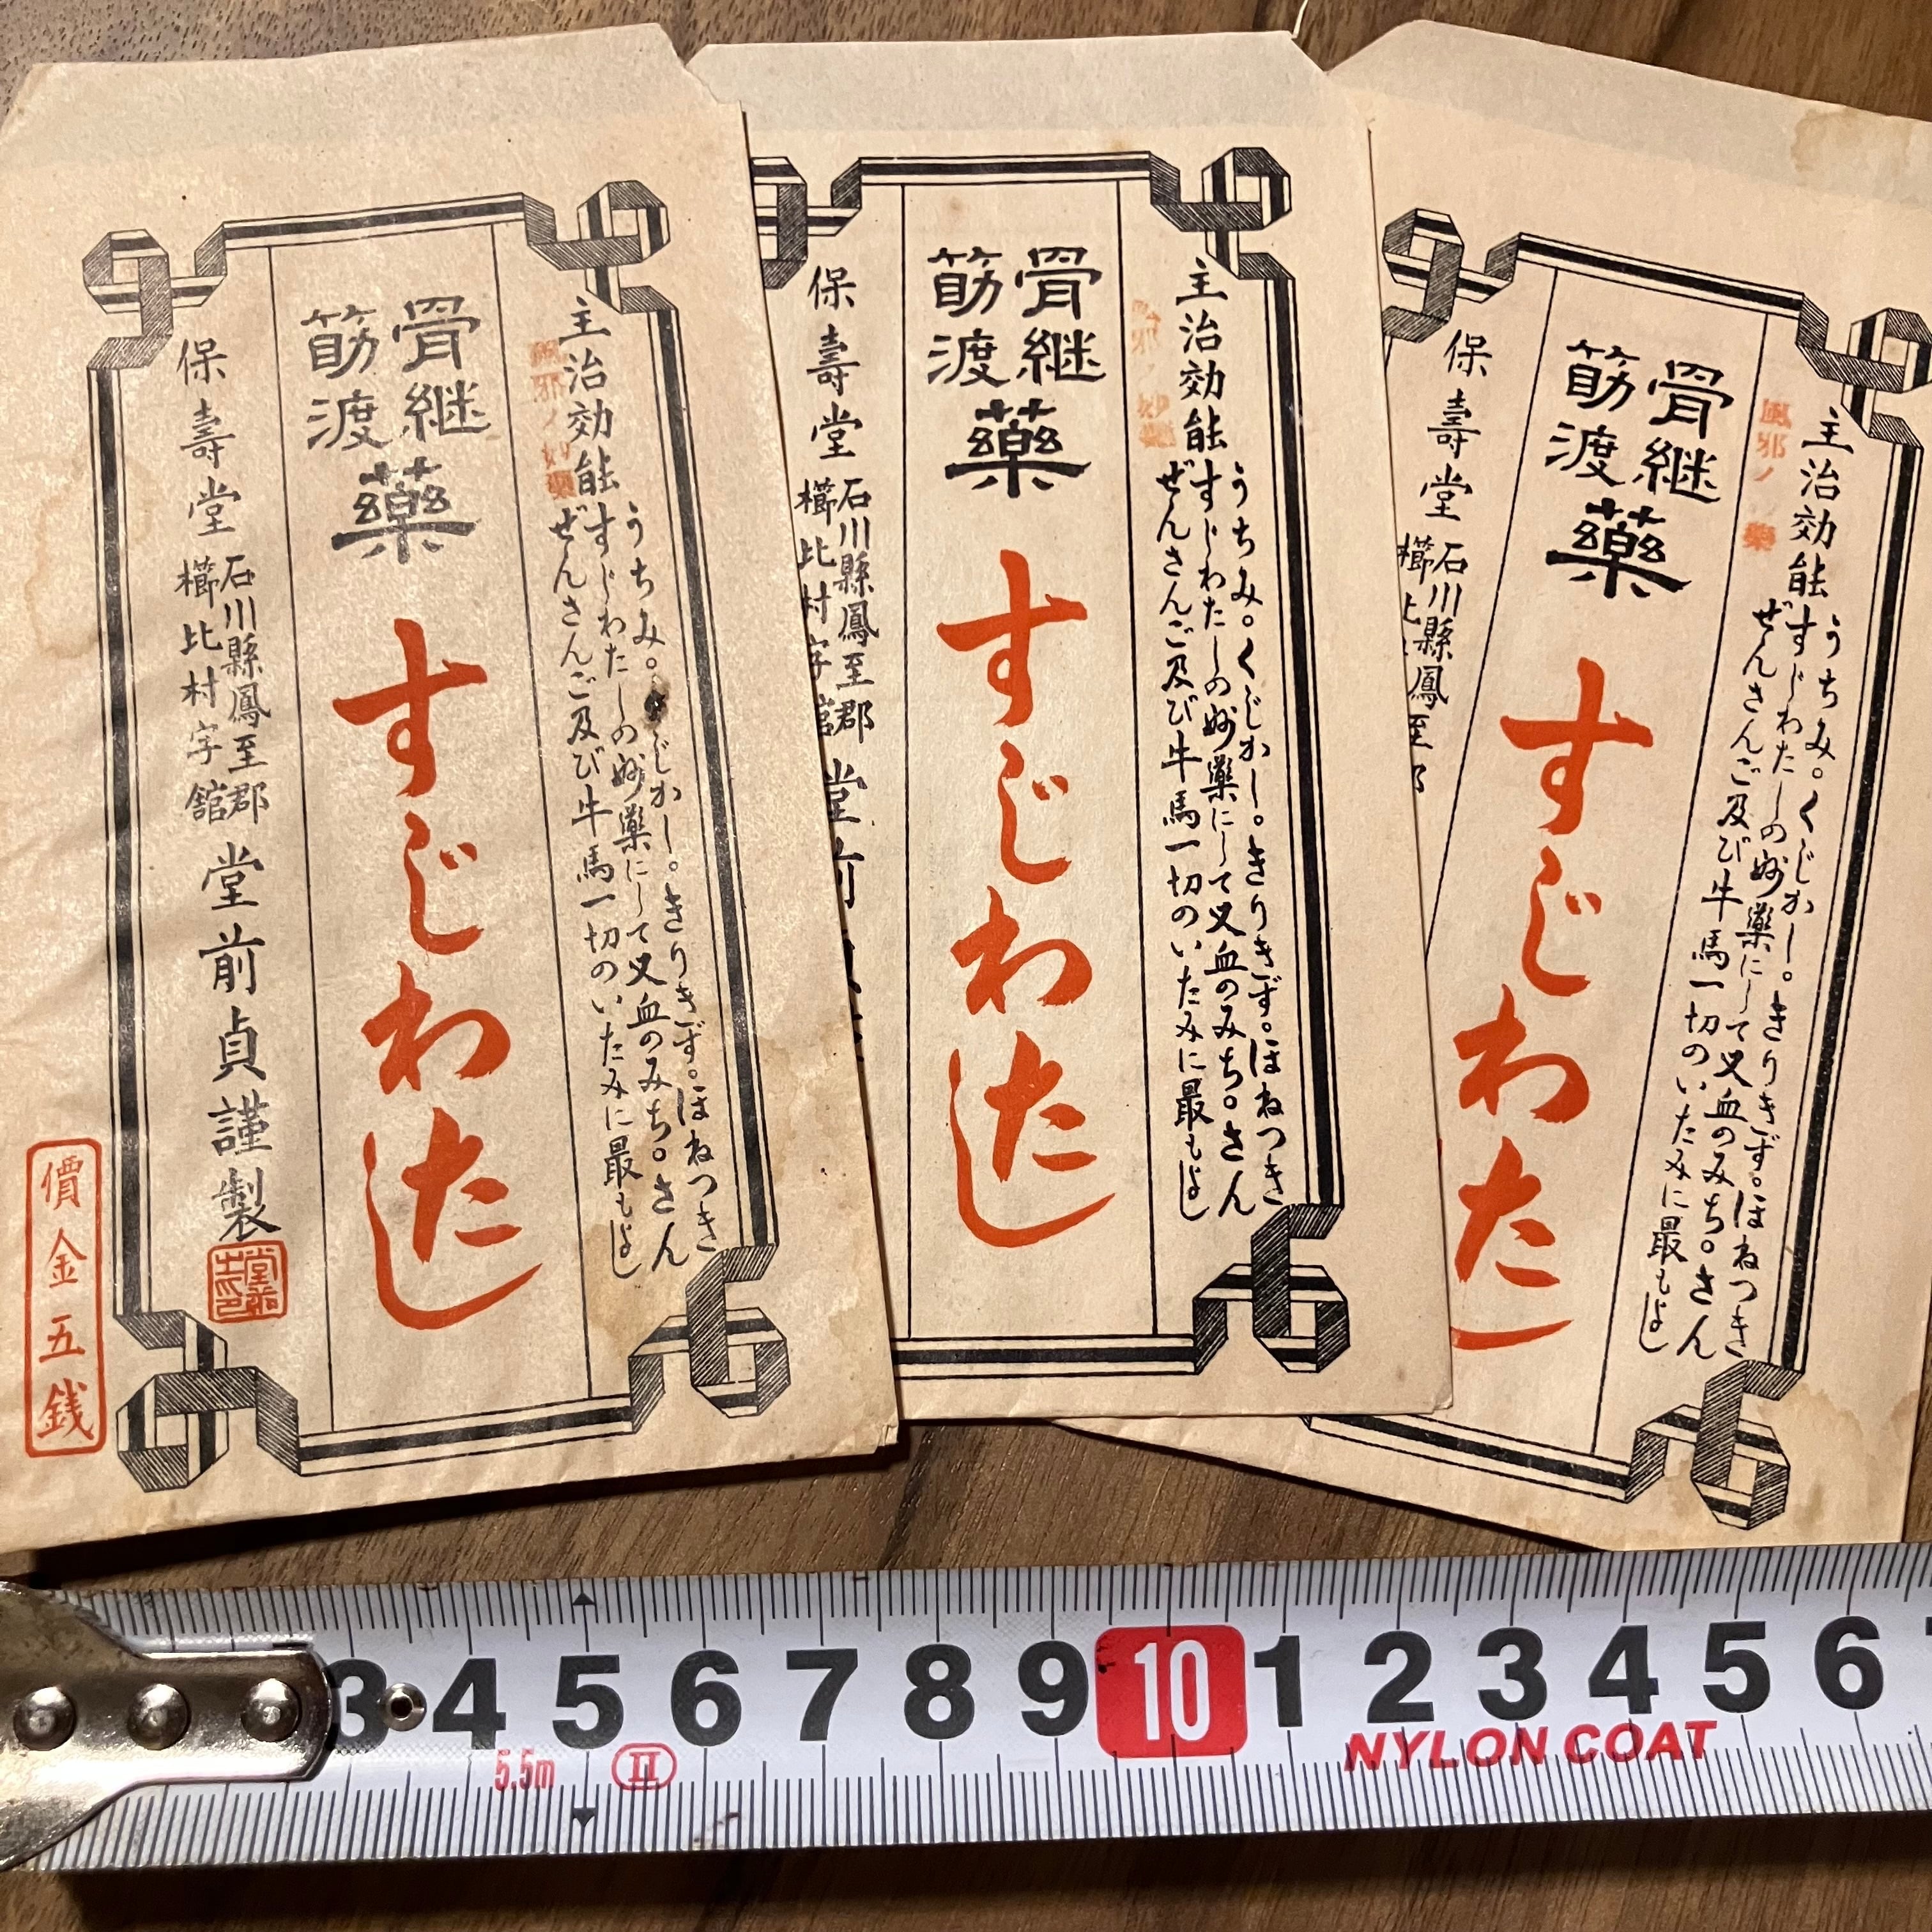 主治効能
うちみ。じかし。きりきず。ほねつき
すじわたしの妙薬にして又血のみち。さん
ぜんさんご及び牛馬一切のいたみに最もよし
風邪ノ妙薬
骨継
筋渡
藥
すじわたし
保壽堂
石川縣鳳至郡
櫛比村字舘
堂前貞謹製
價金五銭
主治効能
うちみ。くじかし。きりきず。ほねつき
すじわたしの妙薬にして又血のみち。さん
ぜんさんご及び牛馬一切のいたみに最もよし
骨継
筋渡
藥
すじわたし
保壽堂
石川縣鳳至郡
櫛比村字舘
堂前
主治効能
うちみ。くじかし。きりきず。ほねつき
すじわたしの妙薬にして又血のみち。さん
ぜんさんご及び牛馬一切のいたみに最もよし
風邪ノ 薬
骨継
筋渡
藥
すじわたし
保壽堂
石川縣鳳至郡
櫛比
3 4 5 6 7 8 9 10 1 2 3 4 5 6
5.5m II NYLON COAT